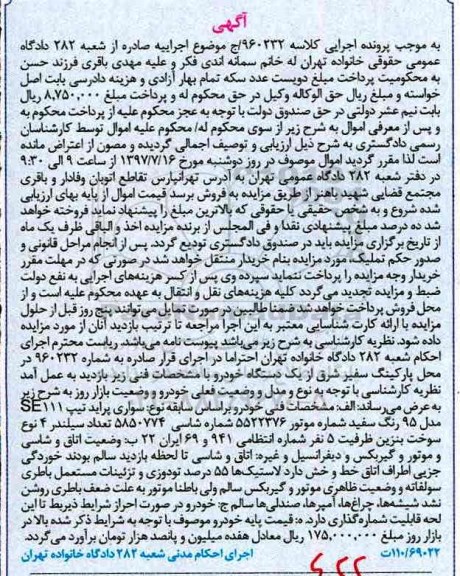 آگهی
به موجب پرونده اجرایی کلاسه ۹۶۰۲۳۲/ج موضوع اجراییه صادره از شعبه ۲۸۲ دادگاه
عمومی حقوقی خانواده تهران له خانم سمانه اندی فکر و علیه مهدی باقری فرزند حسن
به محکومیت پرداخت مبلغ دویست عدد سکه تمام بهار آزادی و هزینه دادرسی بابت اصل
خواسته و مبلغ ریال حق الوکاله وکیل در حق محکوم له و پرداخت مبلغ ۸,۷۵۰,۰۰۰ ریال
بابت نیم عشر دولتی در حق صندوق دولت با توجه به عجز محکوم علیه از پرداخت محکوم به
و پس از معرفی اموال به شرح زیر از سوی محکوم له/ محکوم علیه اموال توسط کارشناسان
رسمی دادگستری به شرح ذیل ارزیابی و توصیف اجمالی گردیده و مصون از اعتراض مانده
است لذا مقرر گردید اموال موصوف در روز دوشنبه مورخ ۱۳۹۷/۷/۱۶ از ساعت ۹ الی ۹:۳۰
در دفتر شعبه ۲۸۲ دادگاه عمومی تهران به آدرس تهرانپارس تقاطع اتوبان وفادار و باقری
مجتمع قضایی شهید باهنر از طریق مزایده به فروش برسد قیمت اموال از پایه بهای ارزیابی
شده شروع و به شخص حقیقی یا حقوقی که بالاترین مبلغ را پیشنهاد نماید فروخته خواهد
شد ده درصد مبلغ پیشنهادی نقدا و فی المجلس از برنده مزایده اخذ و الباقی ظرف یک ماه
از تاریخ برگزاری مزایده باید در صندوق دادگستری تودیع گردد. پس از انجام مراحل قانونی و
صدور حکم تملیک، مورد مزایده بنام خریدار منتقل خواهد شد در صورتی که در مهلت مقرر
خریدار وجه مزایده را پرداخت ننماید سپرده وی پس از کسر هزینه‌های اجرایی به نفع دولت
ضبط و مزایده تجدید می‌گردد کلیه هزینه‌های نقل و انتقال به عهده محکوم علیه است و از
محل فروش پرداخت خواهد شد ضمنا طالبین در صورت تمایل می‌توانند پنج روز قبل از حلول
مزایده با ارائه کارت شناسایی معتبر به این اجرا مراجعه تا ترتیب بازدید آنان از مورد مزایده
داده شود. نظریه کارشناسی به شرح زیر می‌باشد پیوست نامه می‌باشد. ریاست محترم اجرای
احکام شعبه ۲۸۲ دادگاه خانواده تهران احتراما در اجرای قرار صادره به شماره ۹۶۰۲۳۲ در
محل پارکینگ سفیر شرق از یک دستگاه خودرو با مشخصات فنی زیر بازدید به عمل آمد
نظریه کارشناسی با توجه به نوع و مدل و وضعیت فعلی خودرو و وضعیت بازار روز به شرح زیر
به عرض می‌رساند: الف: مشخصات فنی خودرو براساس سابقه نوع: سواری پراید تیپ SE۱۱۱
مدل ۹۵ رنگ سفید شماره موتور ۵۵۲۲۳۷۶ شماره شاسی ۵۸۵۰۷۷۴ تعداد سیلندر ۴ نوع
سوخت بنزین ظرفیت ۵ نفر شماره انتظامی ۹۴۱ و ۶۹ ایران ۲۲ ب: وضعیت اتاق و شاسی
و موتور و گیربکس و دیفرانسیل و غیره: اتاق و شاسی تا لحظه بازدید سالم بودند خوردگی
جزیی اطراف اتاق خط و خش دارد لاستیک‌ها ۵۵ درصد تودوزی و تزئینات مستعمل باطری
سولفاته و وضعیت ظاهری موتور و گیربکس سالم ولی باطنا موتور به علت ضعف باطری روشن
نشد شیشه‌ها، چراغ‌ها، آمپرها، صندلی‌ها سالم ج: خودرو در صورت احراز شرایط ذیربط تا این
لحظه قابلیت شماره‌گذاری دارد. ه: قیمت پایه خودرو موصوف با توجه به شرایط ذکر شده بالا در
بازار روز مبلغ ۱۷۵,۰۰۰,۰۰۰ ریال معادل هفده میلیون و پانصد هزار تومان برآورد می‌گردد.
۱۱۰/۶۹۰۲۲ت اجرای احکام مدنی شعبه ۲۸۲ دادگاه خانواده تهران